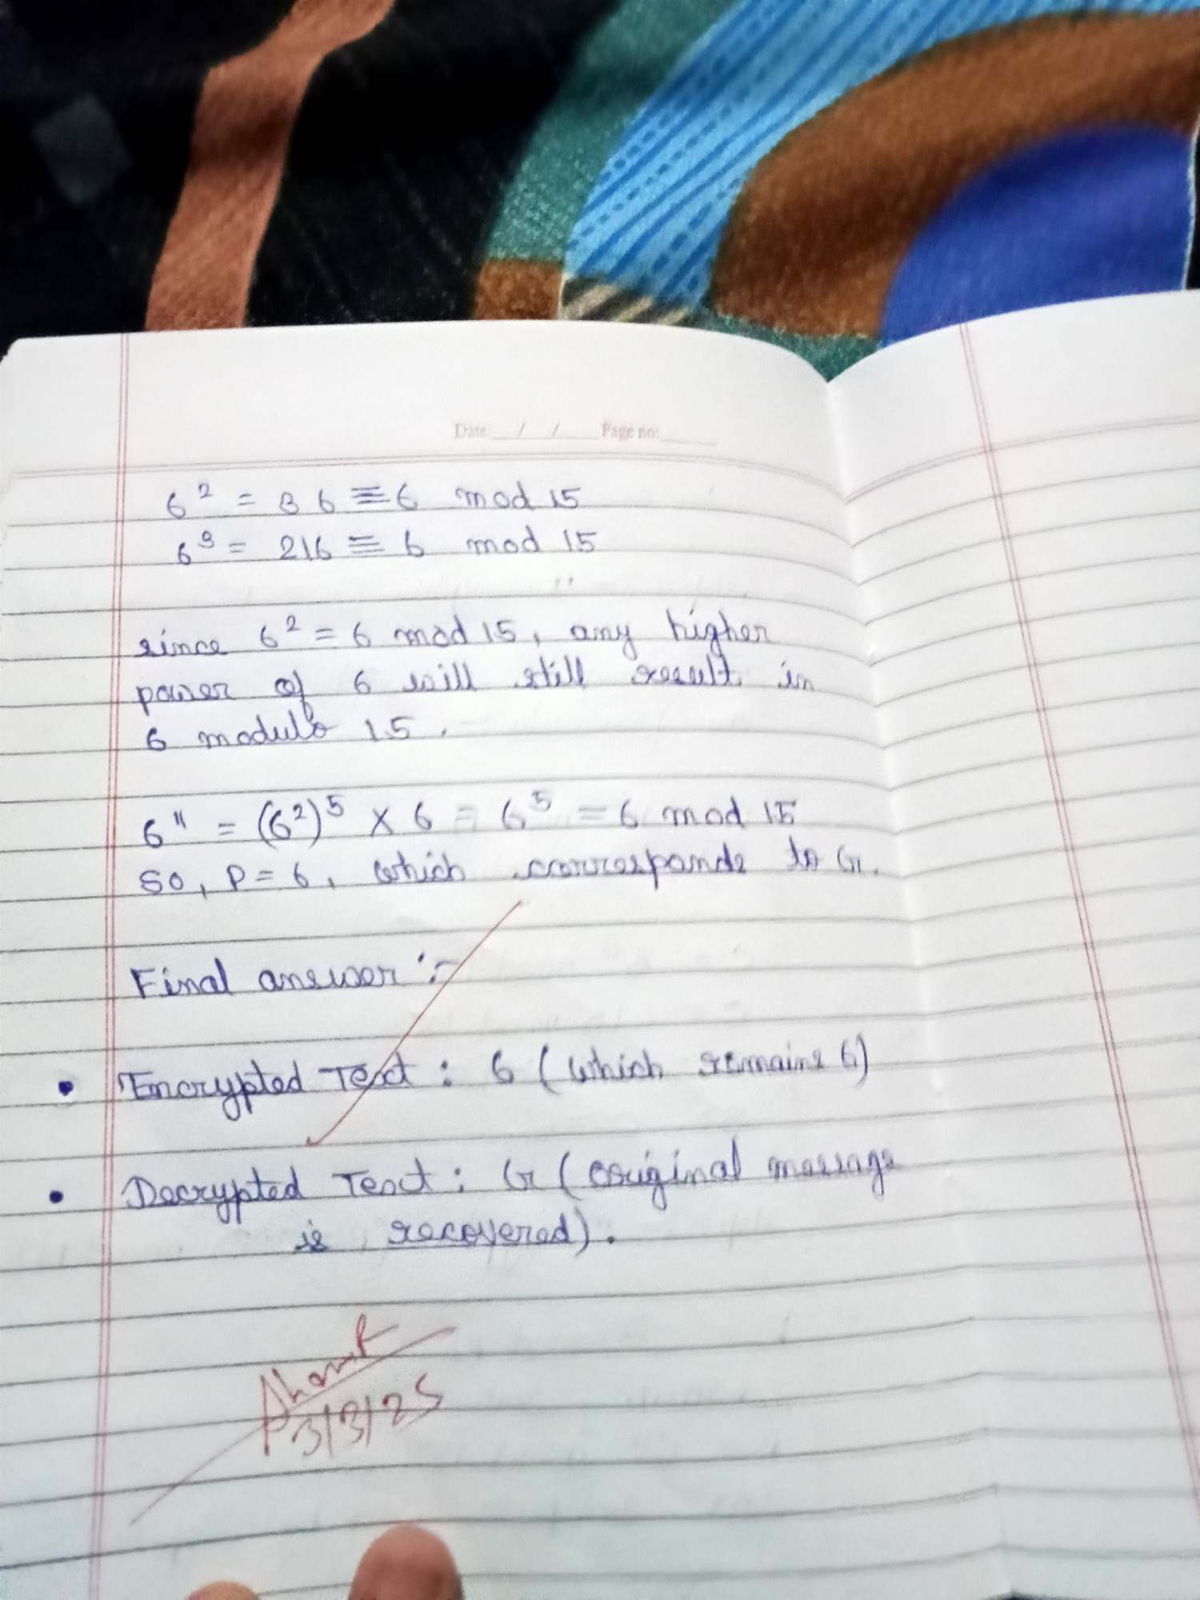 Date: __/__/__ Page no:____
6² = 36 ≡ 6 mod 15
6³ = 216 ≡ 6 mod 15
since 6² = 6 mod 15, any higher
power of 6 will still result in
6 modulo 15.
6¹¹ = (6²)⁵ × 6 = 6⁵ = 6 mod 15
so, P = 6, which corresponds to G.
Final answer :-
• Encrypted Text : 6 (which remains 6)
• Decrypted Text : G (original message
is recovered).
3/3/25